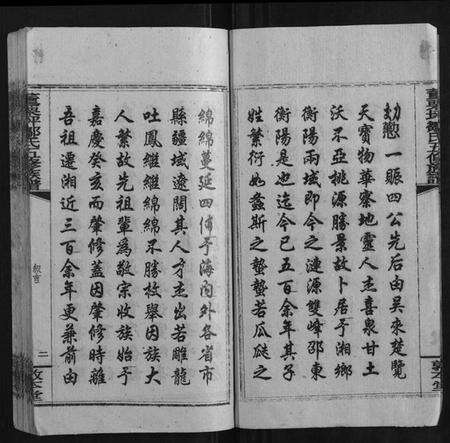 勃懲一賑四公先后由吴來楚覽
天寶物華寨地靈人杰喜泉甘土
沃不亞桃源勝景故卜居于湘鄉
衡陽兩域即今之漣源雙峰邵東
衡陽是也迄今已五百余年其子
姓繁衍如螽斯之蟄蟄若瓜瓞之
綿綿蔓延四佈于海内外各省市
縣疆域遠闊其人才杰出若雕龍
吐鳳繼繼綿綿不勝枚舉因族大
人繁故先祖輩為敬宗收族始于
嘉慶癸亥而肇修蓋因肇修時離
吾祖遷湘近三百余年更兼前由
二
敦本堂